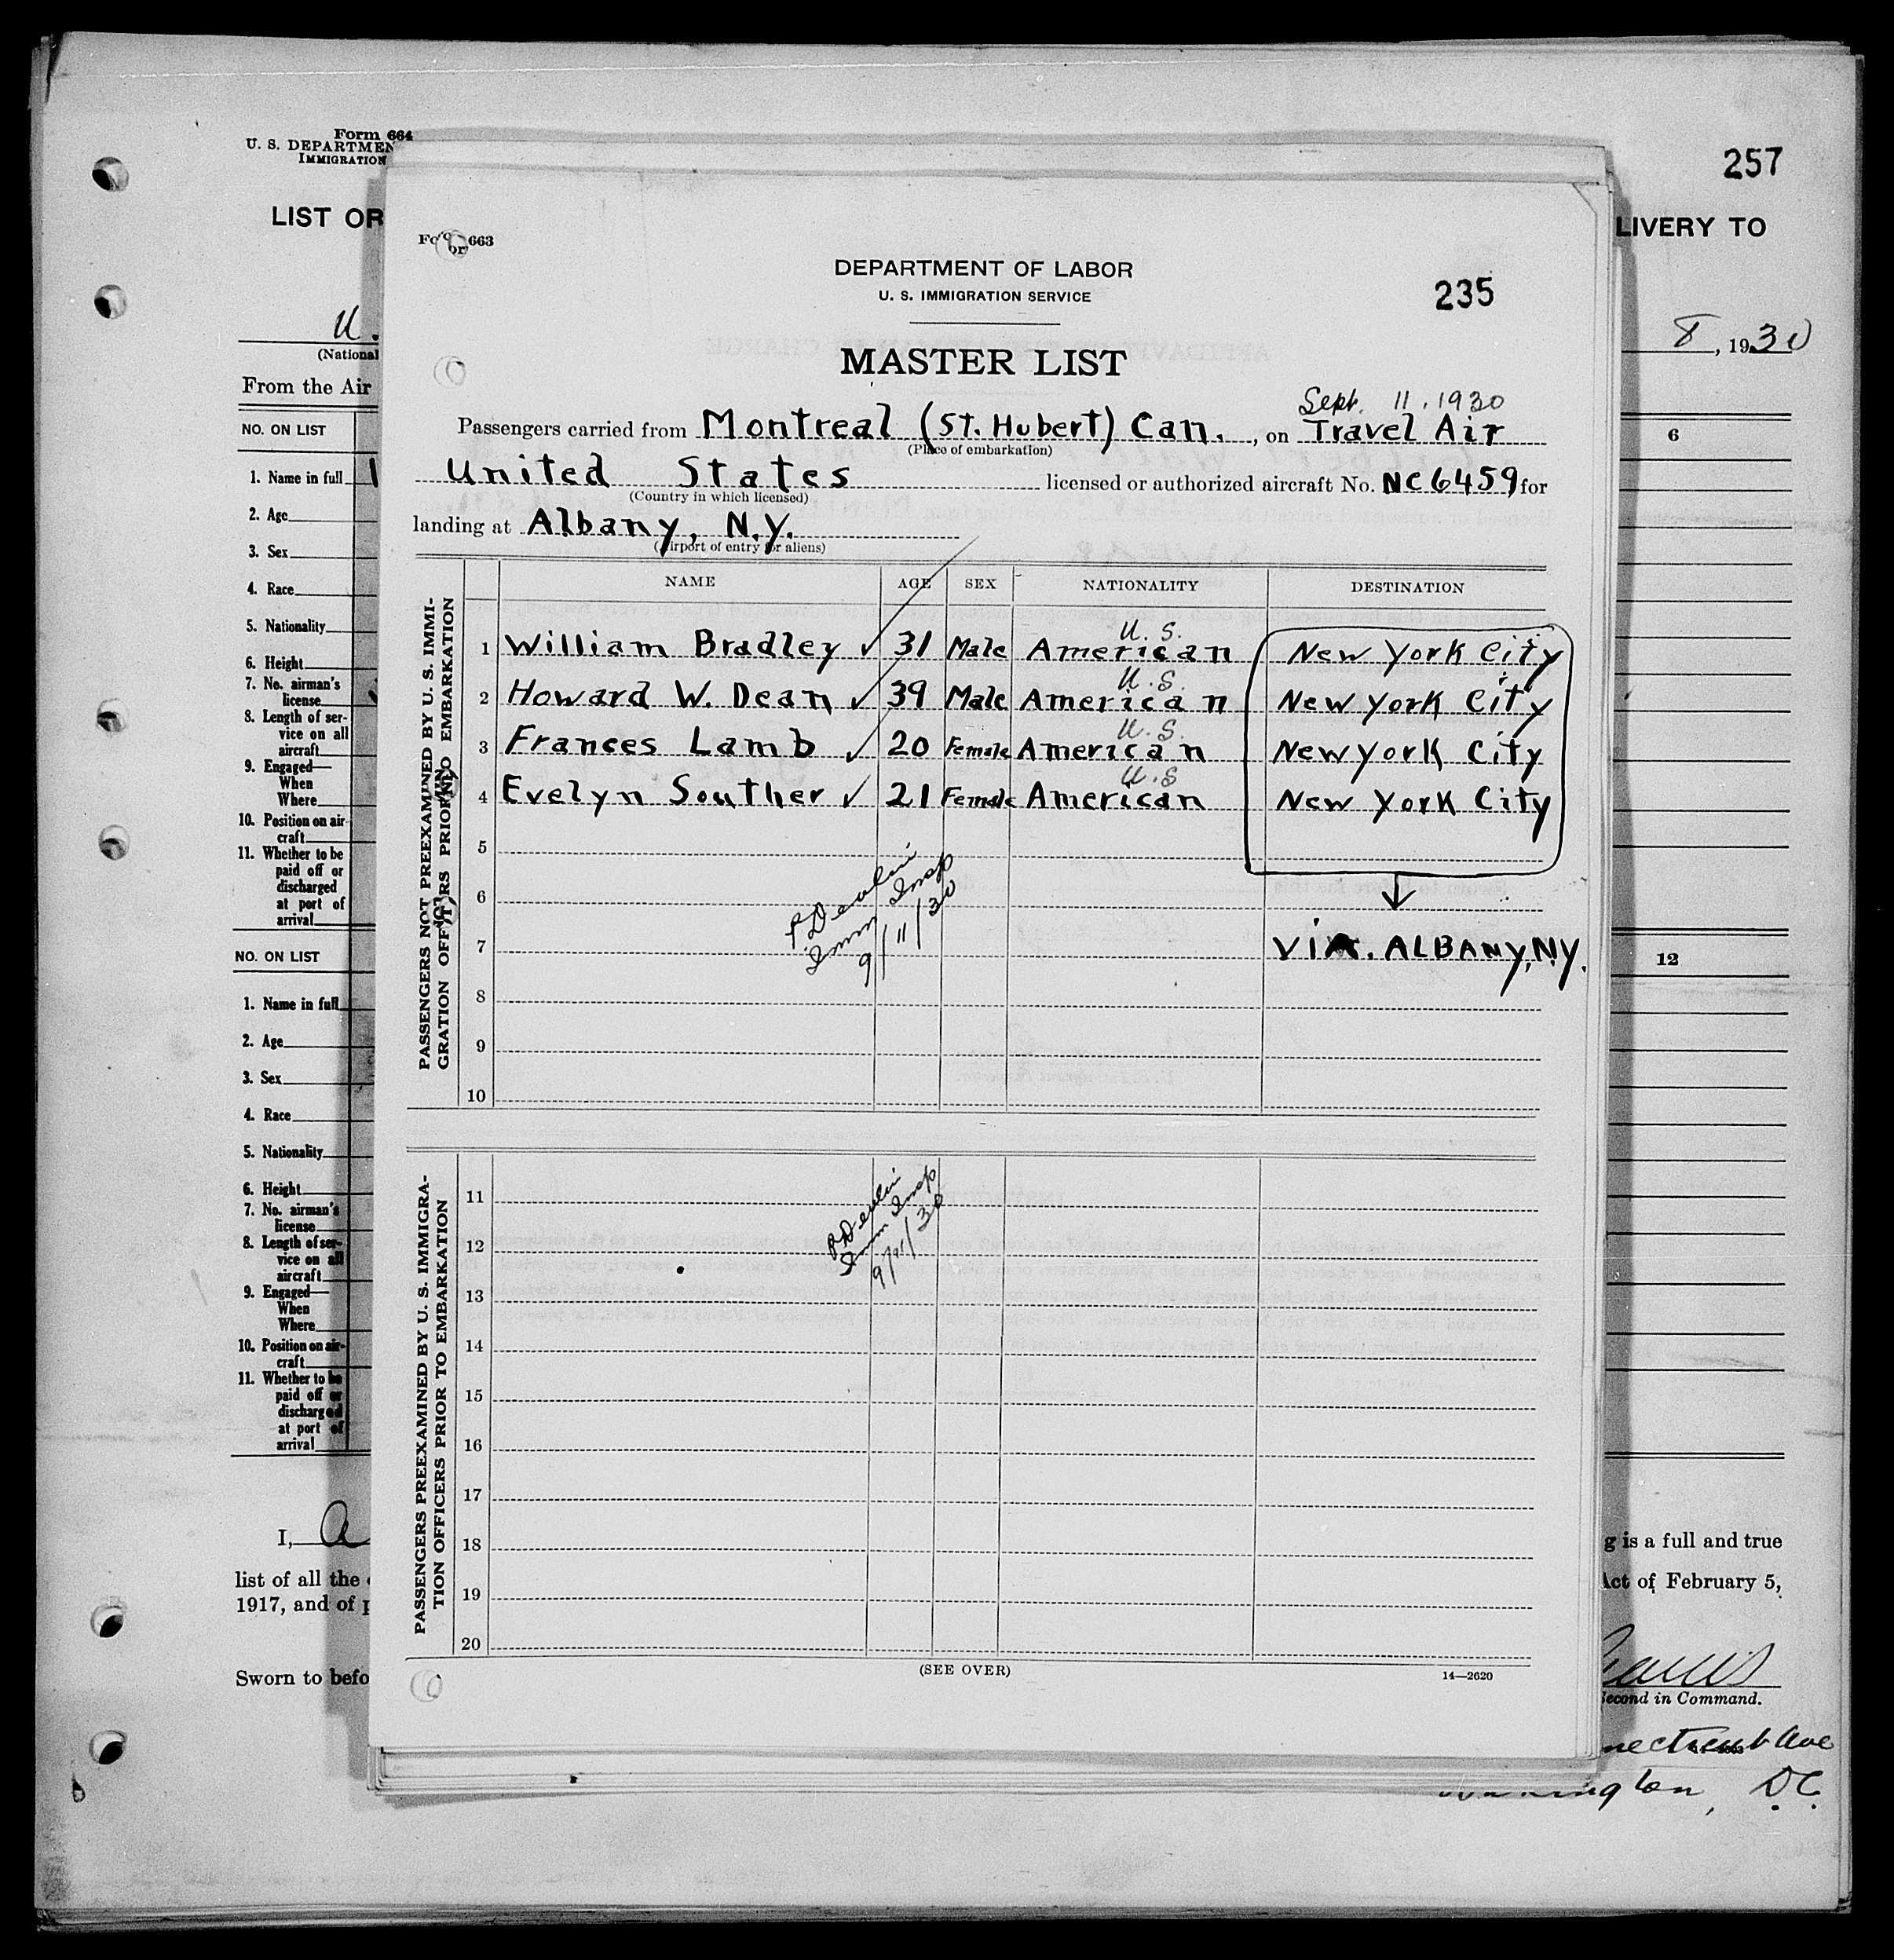 Form 664
U. S. DEPARTMEN
IMMIGRATION
257
LIST OR
LIVERY TO
U.
(National
8, 1930
From the Air
NO. ON LIST
6
1. Name in full
2. Age
3. Sex
4. Race
5. Nationality
6. Height
7. No. airman's
license
8. Length of ser-
vice on all
aircraft
9. Engaged—
When
Where
10. Position on air-
craft
11. Whether to be
paid off or
discharged
at port of
arrival
NO. ON LIST
12
1. Name in full
2. Age
3. Sex
4. Race
5. Nationality
6. Height
7. No. airman's
license
8. Length of ser-
vice on all
aircraft
9. Engaged—
When
Where
10. Position on air-
craft
11. Whether to be
paid off or
discharged
at port of
arrival
I, A
g is a full and true
list of all the
Act of February 5,
1917, and of p
Sworn to befo
Second in Command.
necticut Ave
Washington, D.C.
663
DEPARTMENT OF LABOR
U. S. IMMIGRATION SERVICE
235
MASTER LIST
Sept. 11, 1930
Passengers carried from Montreal (St. Hubert) Can., on Travel Air
(Place of embarkation)
United States licensed or authorized aircraft No. NC6459 for
(Country in which licensed)
landing at Albany, N.Y.
(Airport of entry for aliens)
NAME AGE SEX NATIONALITY DESTINATION
PASSENGERS NOT PREEXAMINED BY U. S. IMMI-
GRATION OFFICERS PRIOR TO EMBARKATION
U. S.
1 William Bradley ✓ 31 Male American New York City
U. S.
2 Howard W. Dean ✓ 39 Male American New York City
U. S.
3 Frances Lamb ✓ 20 Female American New York City
U. S
4 Evelyn Souther ✓ 21 Female American New York City
5
6
7 VIA. ALBANY, N.Y.
P Devlin
Imm Insp
9/11/30
8
9
10
PASSENGERS PREEXAMINED BY U. S. IMMIGRA-
TION OFFICERS PRIOR TO EMBARKATION
11
12
P Devlin
Imm Insp
9/11/30
13
14
15
16
17
18
19
20
(SEE OVER)
14—2620